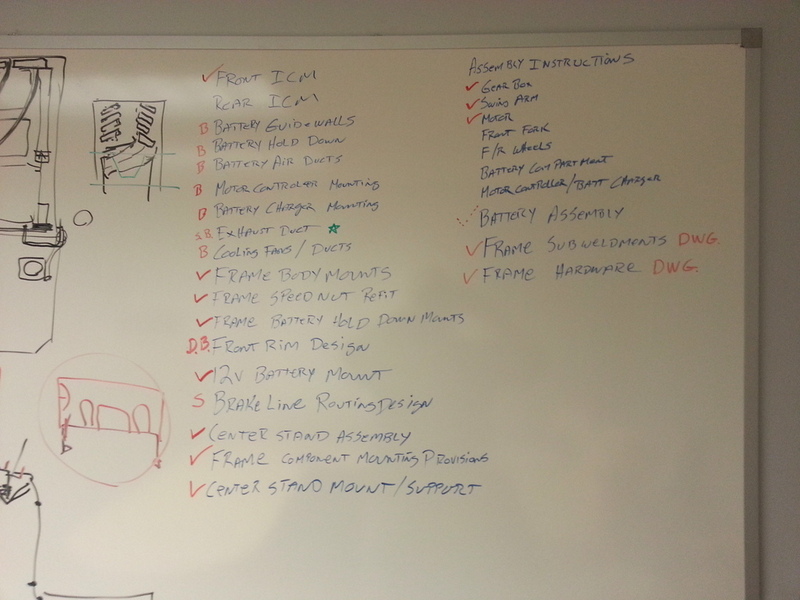 ✓ FRONT ICM
REAR ICM
B BATTERY GUIDEWALLS
B BATTERY HOLD DOWN
B BATTERY AIR DUCTS
B MOTOR CONTROLLER MOUNTING
B BATTERY CHARGER MOUNTING
S.B. EXHAUST DUCT ★
B COOLING FANS / DUCTS
✓ FRAME BODY MOUNTS
✓ FRAME SPEED NUT REFIT
✓ FRAME BATTERY HOLD DOWN MOUNTS
D.B. FRONT RIM DESIGN
✓ 12V BATTERY MOUNT
S BRAKE LINE ROUTING DESIGN
✓ CENTER STAND ASSEMBLY
✓ FRAME COMPONENT MOUNTING PROVISIONS
✓ CENTER STAND MOUNT/SUPPORT
ASSEMBLY INSTRUCTIONS
✓ GEAR BOX
✓ SWING ARM
✓ MOTOR
FRONT FORK
F/R WHEELS
BATTERY COMPARTMENT
MOTOR CONTROLLER/BATT CHARGER
✓ BATTERY ASSEMBLY
✓ FRAME SUBWELDMENTS DWG.
✓ FRAME HARDWARE DWG.